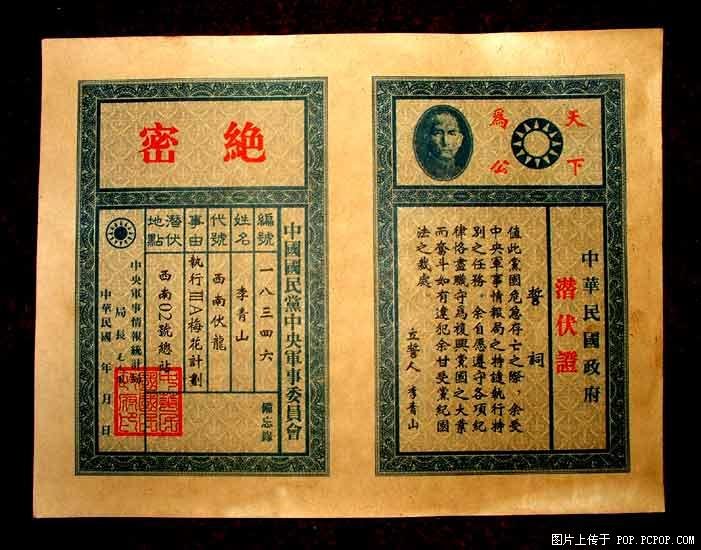 天下
爲公
中華民國政府
潛伏證
誓祠
值此黨國危急存亡之際，余受
中央軍事情報局之特譴執行特
別之任務。余自愿遵守各項紀
律恪盡職守爲復興黨國之大業
而奮斗如有違犯余甘受黨紀國
法之裁處。
立誓人 李青山
絕密
中國國民黨中央軍事委員會
備忘錄
編號 一八三四六
姓名 李青山
代號 西南伏龍
事由 執行ⅢA梅花計劃
潛伏地點 西南02號總社
中央軍事情報統計
局長
中華民國 年 月 日
图片上传于 POP.PCPOP.COM